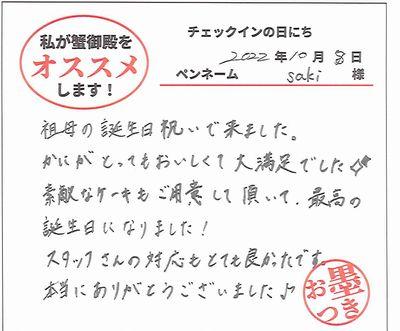 私が蟹御殿を
オススメ
します！
チェックインの日にち
2022年10月8日
ペンネーム saki 様
祖母の誕生日祝いで来ました。
かにがとってもおいしくて大満足でした
素敵なケーキもご用意して頂いて、最高の
誕生日になりました！
スタッフさんの対応もとても良かったです。
本当にありがとうございました♪
墨
おつき